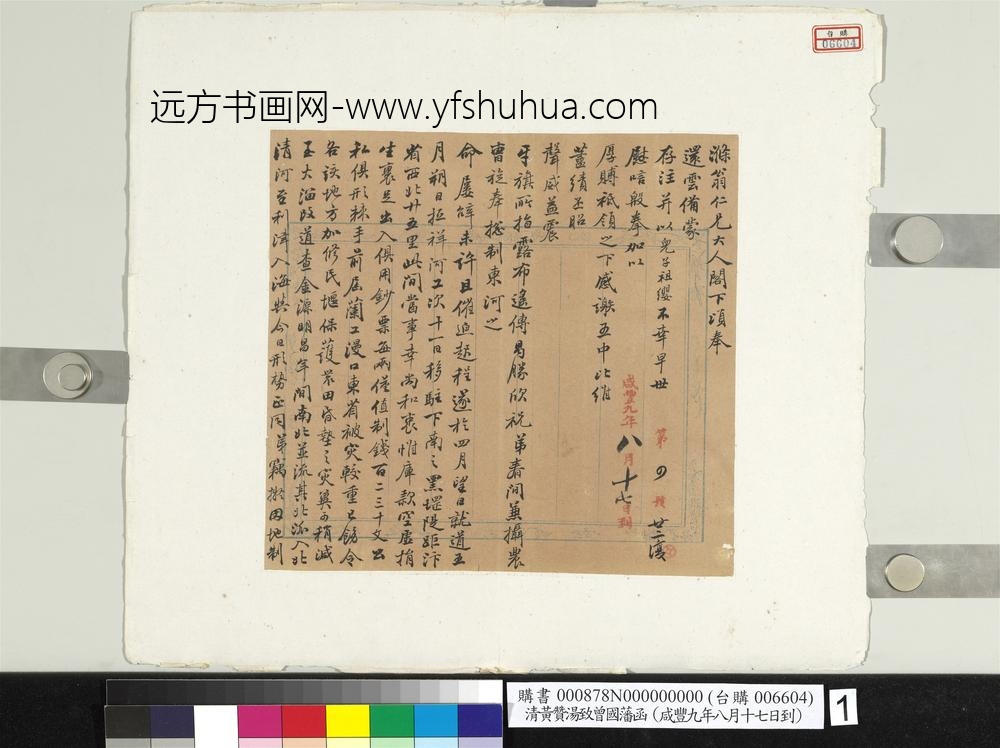 台購
06604
远方书画网-www.yfshuhua.com
滌翁仁兄大人閣下頃奉
還雲備蒙
存注并以兒子祖纓不幸早世
慰唁殷拳加以
厚賻祗領之下感謝五中比維
藎績丕昭
聲威益震
牙旗所指露布遙傳曷勝欣祝弟春間兼攝農
曹旋奉總制東河之
命屢辭未許且催迫起程遂於四月望日就道五
月朔日抵祥河工次十一日移駐下南之黑堽隄距汴
省西北廿五里此間當事幸尚和衷惟庫款空虛捐
生裹足出入俱用鈔票每兩僅值制錢百二三十文公
私俱形棘手前屆蘭工漫口東省被灾較重已飭令
各該地方加修民堰保護農田昏墊之灾冀可稍減
至大溜改道查金源明昌年間南北並流其北派入北
清河至利津入海與今日形勢正同弟竊擬因地制
咸豐九年八月十七日到
第 号
廿二復
購書 000878N000000000 (台購 006604)
清黃贊湯致曾國藩函 (咸豐九年八月十七日到)
1